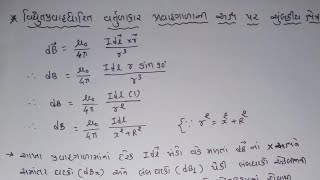 * વિદ્યુતપ્રવાહધારિત વર્તુળાકાર પ્રવાહગાળાની અક્ષ પર ચુંબકીય ક્ષેત્ર
dB = μ₀/4π Idl × r/r³
∴ dB = μ₀/4π Idl r sin 90/r³
∴ dB = μ₀/4π Idl (1)/r²
∴ dB = μ₀/4π Idl/x²+R² {∵ r² = x²+R²
→ આખા પ્રવાહગાળામાંના દરેક Idl ખંડો વડે મળતા dB ના X અક્ષને
સમાંતર ઘટકો (dBx) અને લંબઘટકો (dB⊥) પૈકી લંબઘટકો